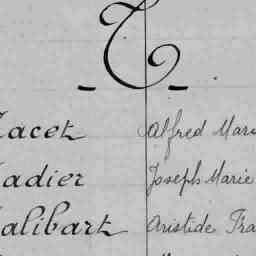 - T -
Tacet Alfred Mari
Tadier Joseph Marie
Talibart Aristide Fra